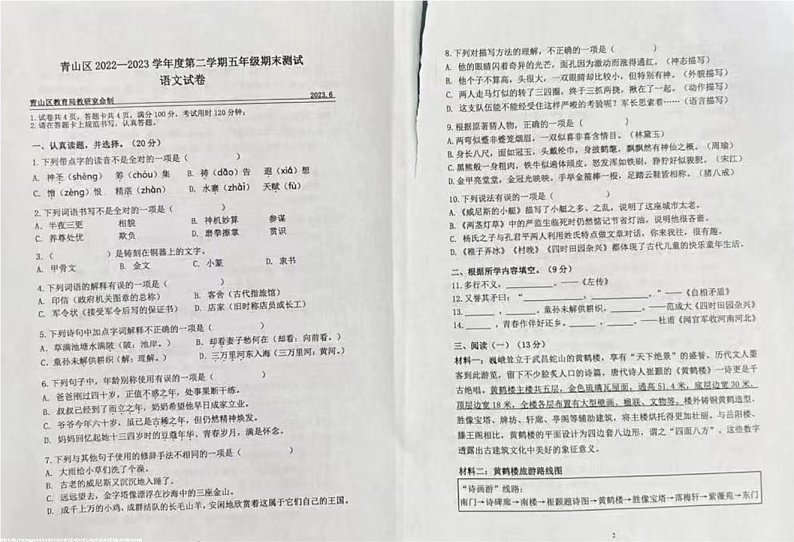 青山区 2022—2023 学年度第二学期五年级期末测试
语文试卷
青山区教育局教研室命制 2023.6
1.试卷共 4 页；答题卡共 4 页，满分 100 分。考试用时 120 分钟；
2.请在答题卡上规范书写，认真答题。
一、认真读题，并选择。（20 分）
1.下列带点字的读音不是全对的一项是（ ）
A．神圣（shèng） 筹（chóu）集 B．祷（dǎo）告 遐（xiá）想
C．憎（zèng）恨 精湛（zhàn） D．水寨（zhài） 天赋（fù）
2.下列词语书写不是全对的一项是（ ）
A．半夜三更 相貌 B．神机妙算 参谋
C．养尊处忧 欺负 D．磨拳擦掌 赏识
3.（ ）是铸刻在铜器上的文字。
A．甲骨文 B．金文 C．小篆 D．隶书
4.下列词语的解释有误的一项是（ ）
A．印信（政府机关图章的总称） B．客舍（古代指旅馆）
C．军令状（接受军令后写的保证书） D．店家（旧时称店员或长工）
5.下列诗句中加点字词解释不正确的一项是（ ）
A．草满池塘水满陂（陂：池岸。） B．却看妻子愁何在（却看：向前看。）
C．童孙未解供耕织（解：理解。） D．三万里河东入海（三万里河：黄河。）
6.下列句子中，年龄别称使用有误的一项是（ ）
A．爸爸刚过四十岁，正值不惑之年，处事果断干练。
B．叔叔已经到了而立之年，奶奶希望他早日成家立业。
C．爷爷今年六十岁，虽已是古稀之年，但仍然精神焕发。
D．妈妈回忆起她十三四岁时的豆蔻年华、青春岁月，满是怀念。
7.下列与其他句子使用的修辞手法不相同的一项是（ ）
A．大雨给小草们洗了个澡。
B．老态的威尼斯又沉沉地入睡了。
C．远远望去，金字塔像漂浮在沙海中的三座金山。
D．成千上万的小鸡，成群结队的长毛山羊，安闲地欣赏着这属于它们自己的王国。
8.下列对描写方法的理解，不正确的一项是（ ）
A．他的眼睛闪着奇异的光芒，面孔因为激动而涨得通红。（神态描写）
B．他个子不算高，头很大，一双大眼睛却比较小，但特别有神。（外貌描写）
C．两人走马灯似的转了三四圈，终于三抓两挠，揪在了一起。（动作描写）
D．这支队伍能不能经受住这样严峻的考验呢？军长思索着……（语言描写）
9.根据原著猜人物，正确的一项是（ ）
A.两弯似蹙非蹙笼烟眉，一双似喜非喜含情目。（林黛玉）
B.身长八尺，面如冠玉，头戴纶巾，身披鹤氅，飘飘然有神仙之概。（周瑜）
C.黑熊般一身粗肉，铁牛似遍体顽皮。怒发浑如铁刷，狰狞好似狻猊。（宋江）
D.金甲亮堂堂，金冠光映映，手举金箍棒一根，足踏云鞋皆相称。（猪八戒）
10.下列说法有误的一项是（ ）
A．《威尼斯的小艇》描写了小艇之多、之乱，说明了这座城市太老。
B．《两茎灯草》中的严监生临死时仍然惦记节省灯油，说明他很吝啬。
C．杨氏之子与孔君平两人利用姓氏特点做文章对话，你来我往，很有趣。
D．《稚子弄冰》《村晚》《四时田园杂兴》都体现了古代儿童的快乐童年生活。
二、根据所学内容填空。（9 分）
11.多行不义，______。——《左传》
12.又誉其矛曰：“______，______。”——《自相矛盾》
13.______，______。童孙未解供耕织，______。——范成大《四时田园杂兴》
14.______，青春作伴好还乡。______，______。——杜甫《闻官军收河南河北》
三、阅读（一）（13 分）
材料一：巍峨耸立于武昌蛇山的黄鹤楼，享有“天下绝景”的盛誉。历代文人墨
客到此游览，留下不少脍炙人口的诗篇，唐代诗人崔颢的《黄鹤楼》一诗更是千
古绝唱。黄鹤楼主楼共五层，金色琉璃瓦屋面，通高 51.4 米，底层边宽 30 米，
顶层边宽 18 米，全楼各层布置有大型壁画、楹联、文物等。楼外铸铜黄鹤造型、
胜像宝塔、牌坊、轩廊、亭阁等辅助建筑，将主楼烘托得更加壮丽。与岳阳楼、
滕王阁相比，黄鹤楼的平面设计为四边套八边形，谓之“四面八方”。这些数字
透露出古建筑文化中美好的象征意义。
材料二：黄鹤楼旅游路线图
“诗画游”线路：
南门→诗碑廊→南楼→崔颢题诗图→黄鹤楼→胜像宝塔→落梅轩→紫薇苑→东门
2